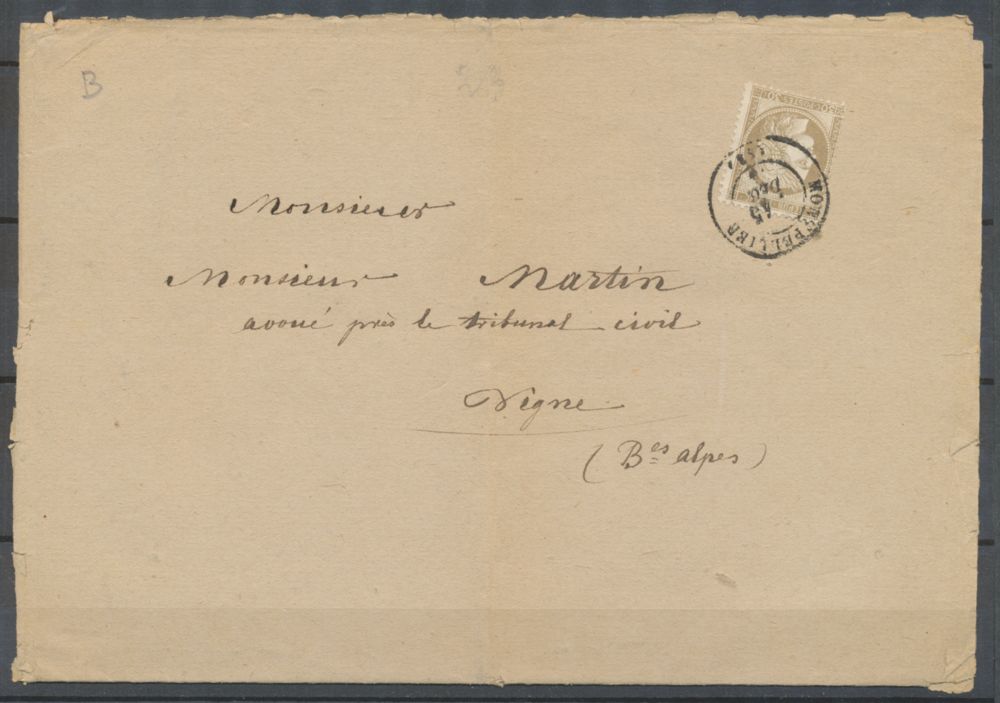 B
Monsieur
Monsieur Martin
avoué près le tribunal civil
Digne
(Bes alpes)
MONTPELLIER
15
DEC.
30 C POSTES 30 C